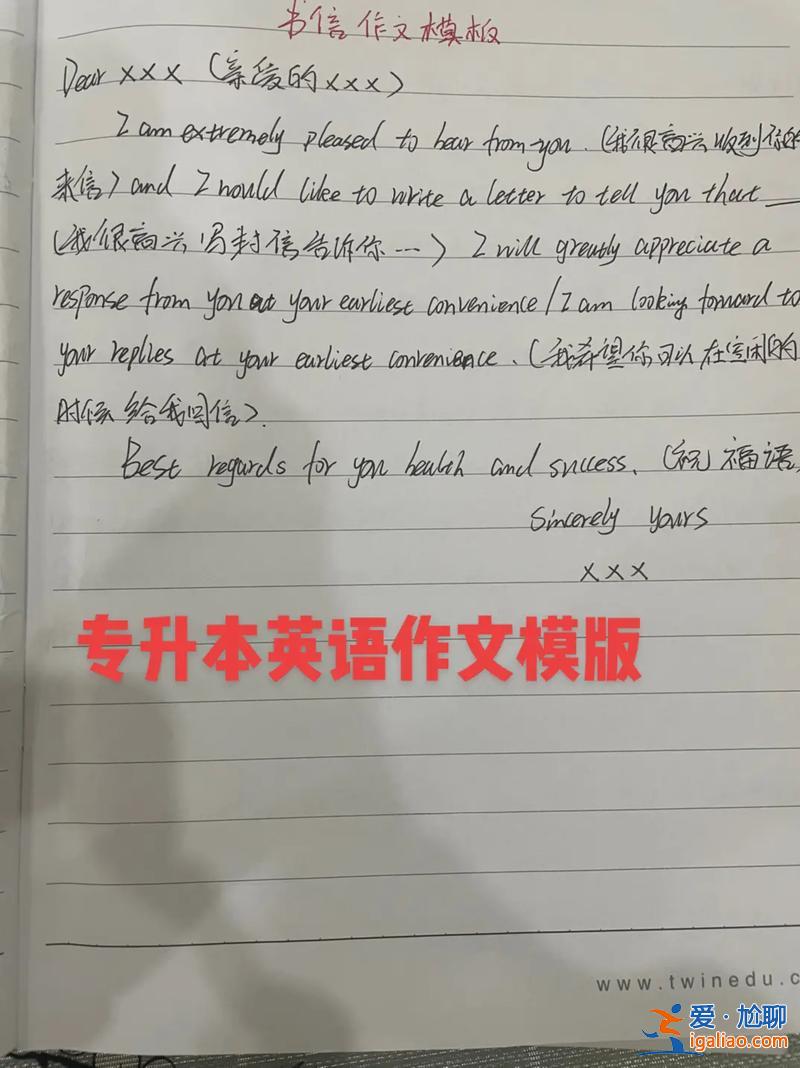 书信作文模板
Dear xxx (亲爱的xxx)
I am extremely pleased to hear from you. (我很高兴收到你的
来信) and I would like to write a letter to tell you that __
(我很高兴写封信告诉你…) I will greatly appreciate a
response from you at your earliest convenience / I am looking forward to
your replies at your earliest convenience. (我希望你可以在空闲的
时候给我回信).
Best regards for you health and success. (祝福语)
Sincerely yours
xxx
专升本英语作文模版
www.twinedu.c
爱·尬聊
igaliao.com